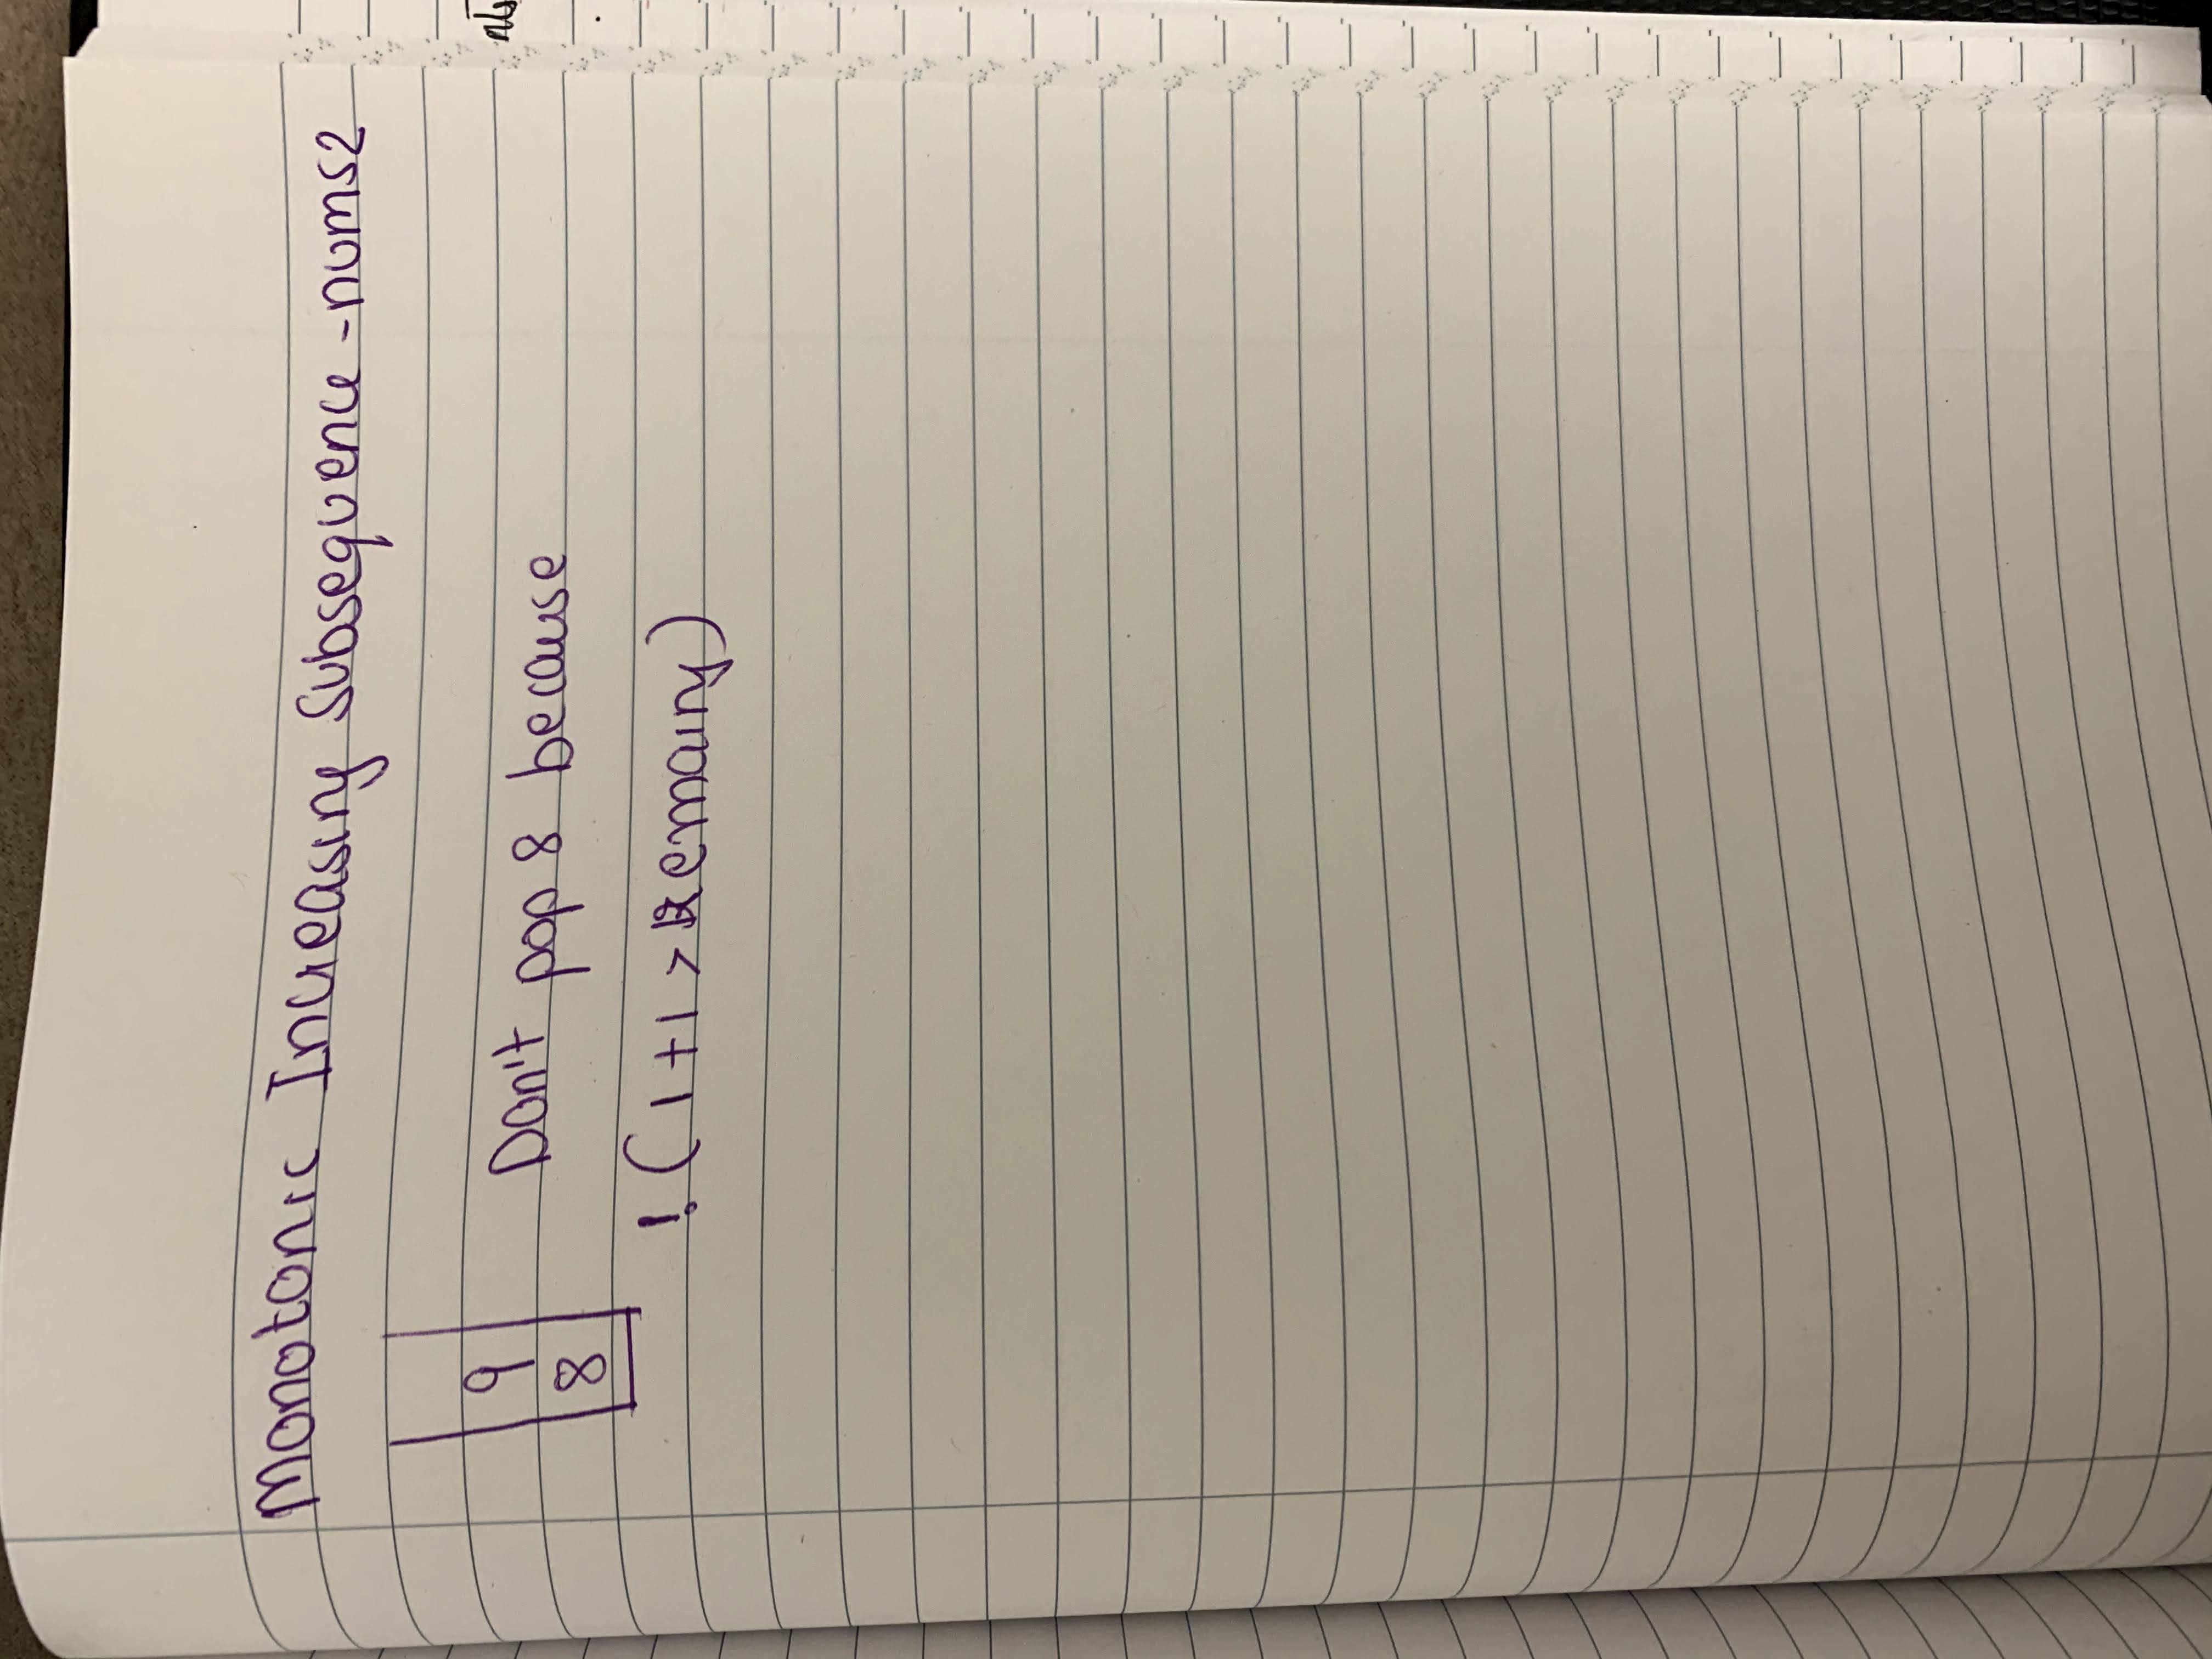 Monotonic Increasing Subsequence - nums2
9
8
Don't pop 8 because
! (1+1 > Remaing)